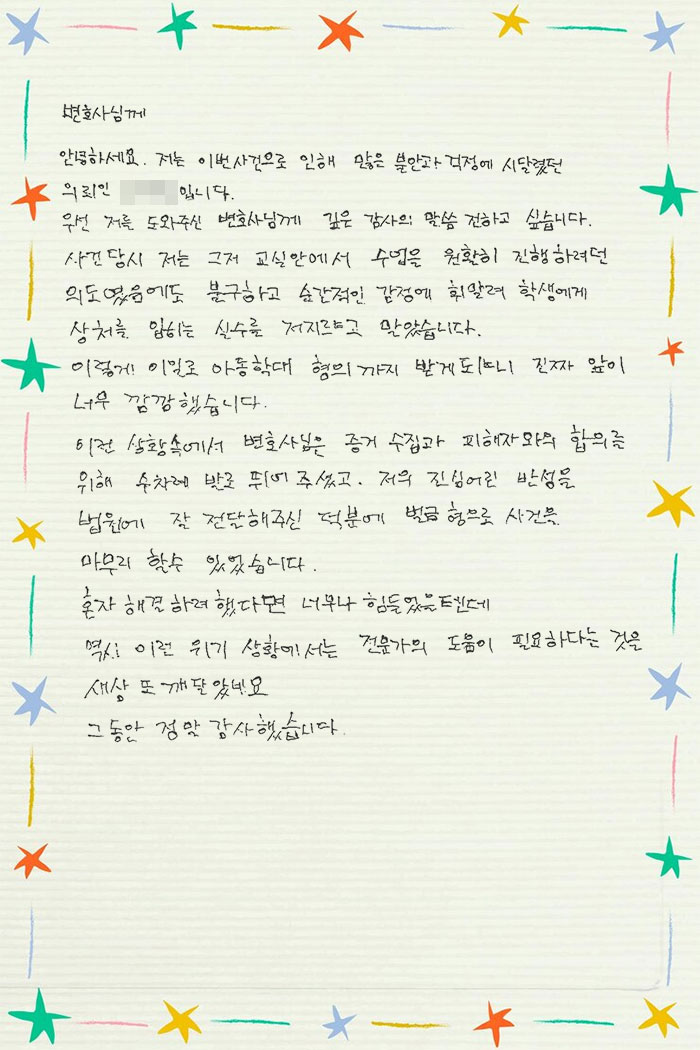 변호사님께
안녕하세요. 저는 이번사건으로 인해 많은 불안과 걱정에 시달렸던
의뢰인 입니다.
우선 저를 도와주신 변호사님께 깊은 감사의 말씀 전하고 싶습니다.
사건당시 저는 그저 교실안에서 수업을 원활히 진행하려던
의도였음에도 불구하고 순간적인 감정에 휘말려 학생에게
상처를 입히는 실수를 저지르고 말았습니다.
이렇게 이일로 아동학대 혐의까지 받게되니 진짜 앞이
너무 깜깜했습니다.
이런 상황속에서 변호사님은 증거 수집과 피해자와의 합의를
위해 수차례 발로 뛰어주셨고. 저의 진심어린 반성을
법원에 잘 전달해주신 덕분에 벌금형으로 사건을
마무리 할수 있었습니다.
혼자 해결하려했다면 너무나 힘들었을텐데
역시 이런 위기 상황에서는 전문가의 도움이 필요하다는 것을
새삼 또 깨달았네요
그동안 정말 감사했습니다.